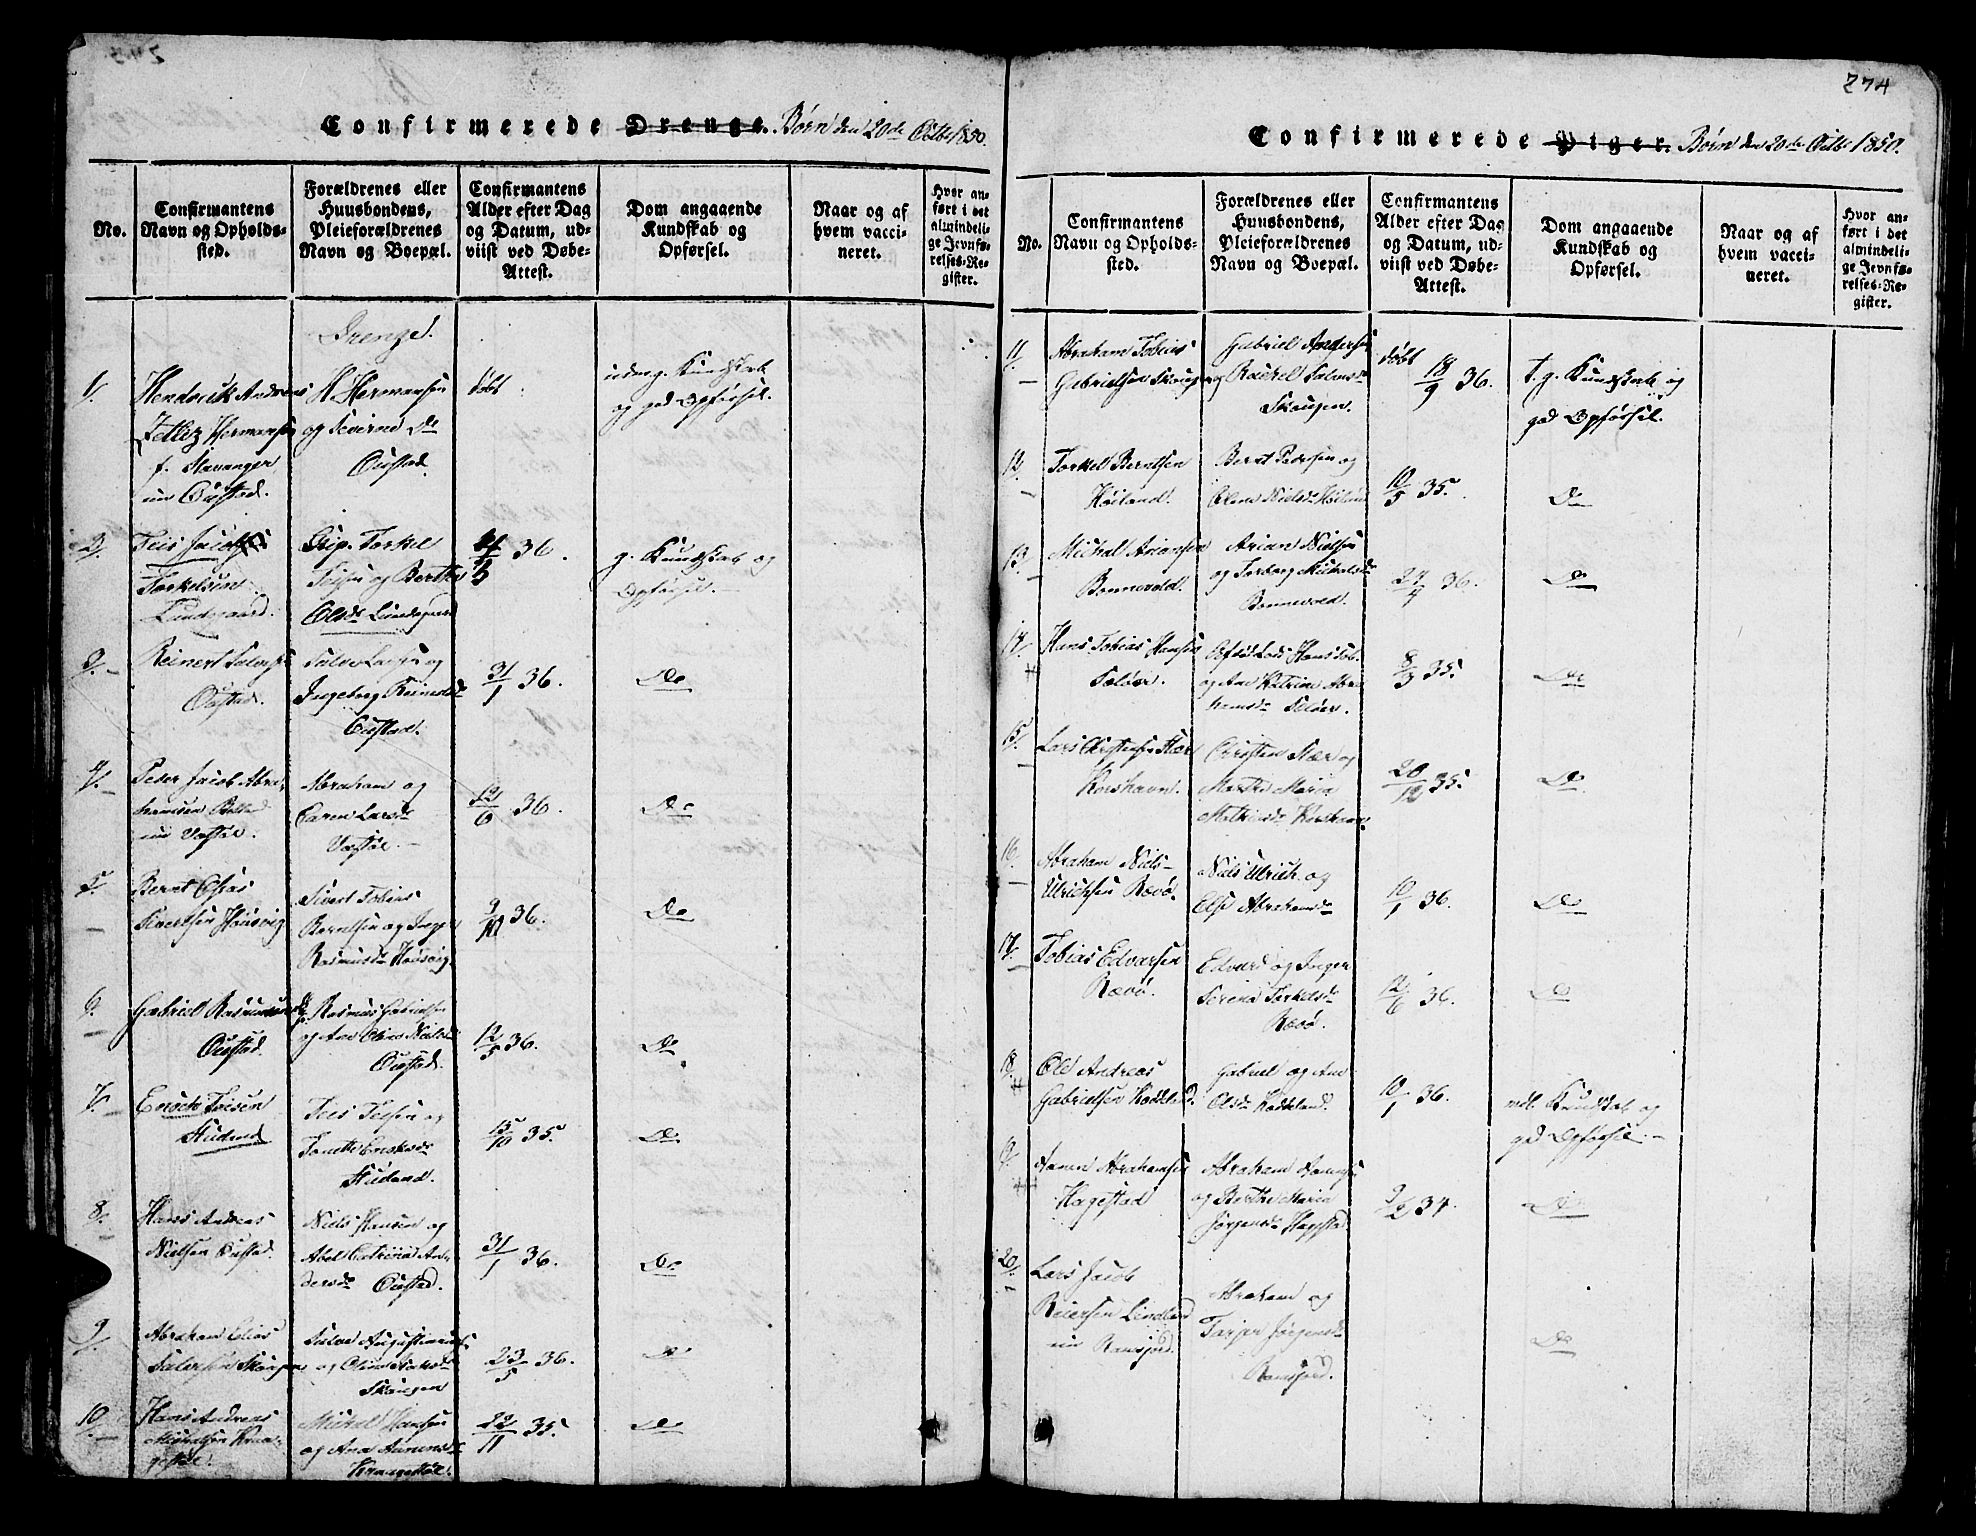 274
Confirmerede Drenge. Børn den 20de Octbr 1850.
No.
Confirmantens
Navn og Opholds-
sted.
Forældrenes eller
Huusbondens,
Pleieforældrenes
Navn og Boepæl.
Confirmantens
Alder efter Dag
og Datum, ud-
viist ved Døbe-
Attest.
Dom angaaende
Kundskab og
Opførsel.
Naar og af
hvem vacci-
neret.
Hvor an-
ført i det
almindeli-
ge Jevnfø-
relses-Re-
gister.
Drenge.
1/.
Hendrick Andreas
Zetlez Hermansen
f. Stavanger
nu Oustad.
H. Hermansen
og Severine Do
Oustad.
døbt
udmg. Kundskab
og god Opførsel.
2/.
Teis Jacob
Torkelsen
Lundegaard.
Torkel
Teisen og Berthe
Olsdr Lundegaard
36.
g. Kundskab og
Opførsel.
3/.
Reinert Salvesen
Oustad.
Salve Larsen og
Ingeborg Reinertsdr
Oustad.
31/1 36.
Do
4/.
Peder Jacob Abra-
hamsen
nu Vestøl.
Abraham og
Caren Larsdr
Vestøl.
12/6 36.
Do
5/.
Bernt Elias
Sivertsen Housvig
Sivert Tobias
Berntsen og Inger
Rasmusdr Housvig.
9/10 36.
Do
6/.
Gabriel Rasmussen
Oustad.
Rasmus Gabrielsen
og Ane Olene Neilsdr
Oustad.
12/5 36.
Do
7/.
Enoch Teisen
Stuland
Teis Teisen og
Tonette Enoksdr
Stuland.
15/10 35.
Do
8/.
Hans Andreas
Nielsen Oustad.
Niels Hansen og
Abel Catrine An-
dersdr Oustad.
31/1 36.
Do
9/.
Abraham Elias
Salvesen Skougen
Salve Augustinusen
og Olene Aaksdr
Skougen
23/5 36.
Do
10/.
Hans Andreas
Michelsen Kraa-
gestøl.
Michel Hansen
og Ane Aanensdr
Kraagestøl.
22/11 35.
Do
Confirmerede Piger. Børn den 20de Octbr 1850.
No.
Confirmantens
Navn og Opholds-
sted.
Forældrenes eller
Huusbondens,
Pleieforældrenes
Navn og Boepæl.
Confirmantens
Alder efter Dag
og Datum, ud-
viist ved Døbe-
Attest.
Dom angaaende
Kundskab og
Opførsel.
Naar og af
hvem vacci-
neret.
Hvor an-
ført i det
almindeli-
ge Jevnfø-
relses-Re-
gister.
11/.
Abraham Tobias
Gabrielsen Skougen
Gabriel Andersen
og Rachel Salvesdr
Skougen.
døbt 18/9 36.
t. g. Kundskab og
god Opførsel.
12/.
Torkel Berntsen
Høiland.
Bernt Pedersen og
Elene Nielsdr Høiland
10/5 35.
Do
13/.
Michal Ariansen
Bennevold.
Arian Nielsen
og Torborg Michelsdr
Bennevold.
24/4 36.
Do
14/.
Hans Tobias Hansen
Seløer.
Afdød Lods Hans Tob.
og Ane Katrine Abra-
hamsdr Seløer.
8/3 35.
Do
15/.
Lars Christensen Stær
Korshavn.
Christen Stær og
Marthe Maria
Mathiasdr Korshavn.
20/12 35.
Do
16/.
Abraham Niels-
Ulrichsen Rævø.
Niels Ulrich og
Else Abrahamsdr
10/1 36.
Do
17/.
Tobias Edvarsen
Rævø.
Edvard og Inger
Serina Terkelsdr
Rævø.
12/6 36.
Do
18/.
Ole Andreas
Gabrielsen Koddeland.
Gabriel og Ane
Olsdr Koddeland.
10/1 36.
mdl. Kundskab og
god Opførsel.
19/.
Aanen Abrahamsen
Hagestad
Abraham Aanensen
og Berthe Maria
Jørgensdr Hagestad.
9/2 34.
Do
20/.
Lars Jacob
Reiersen Lindland
nu Ramsjord.
Abraham og
Tarjer Jørgensdr
Ramsjord.
Do